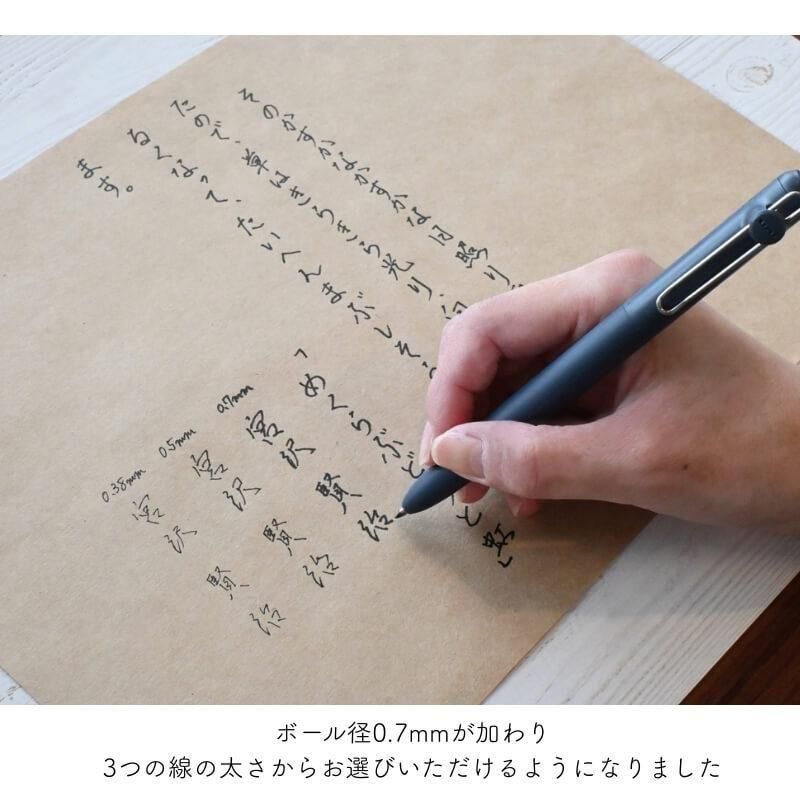 そのかすかなかすかな日照り
たので、草はきらきら光り、向
るくなって、たいへんまぶしそう
ます。
「めくらぶど と虹」
0.7mm 宮沢賢治
0.5mm 宮沢賢治
0.38mm 宮沢賢治
ボール径0.7mmが加わり
3つの線の太さからお選びいただけるようになりました